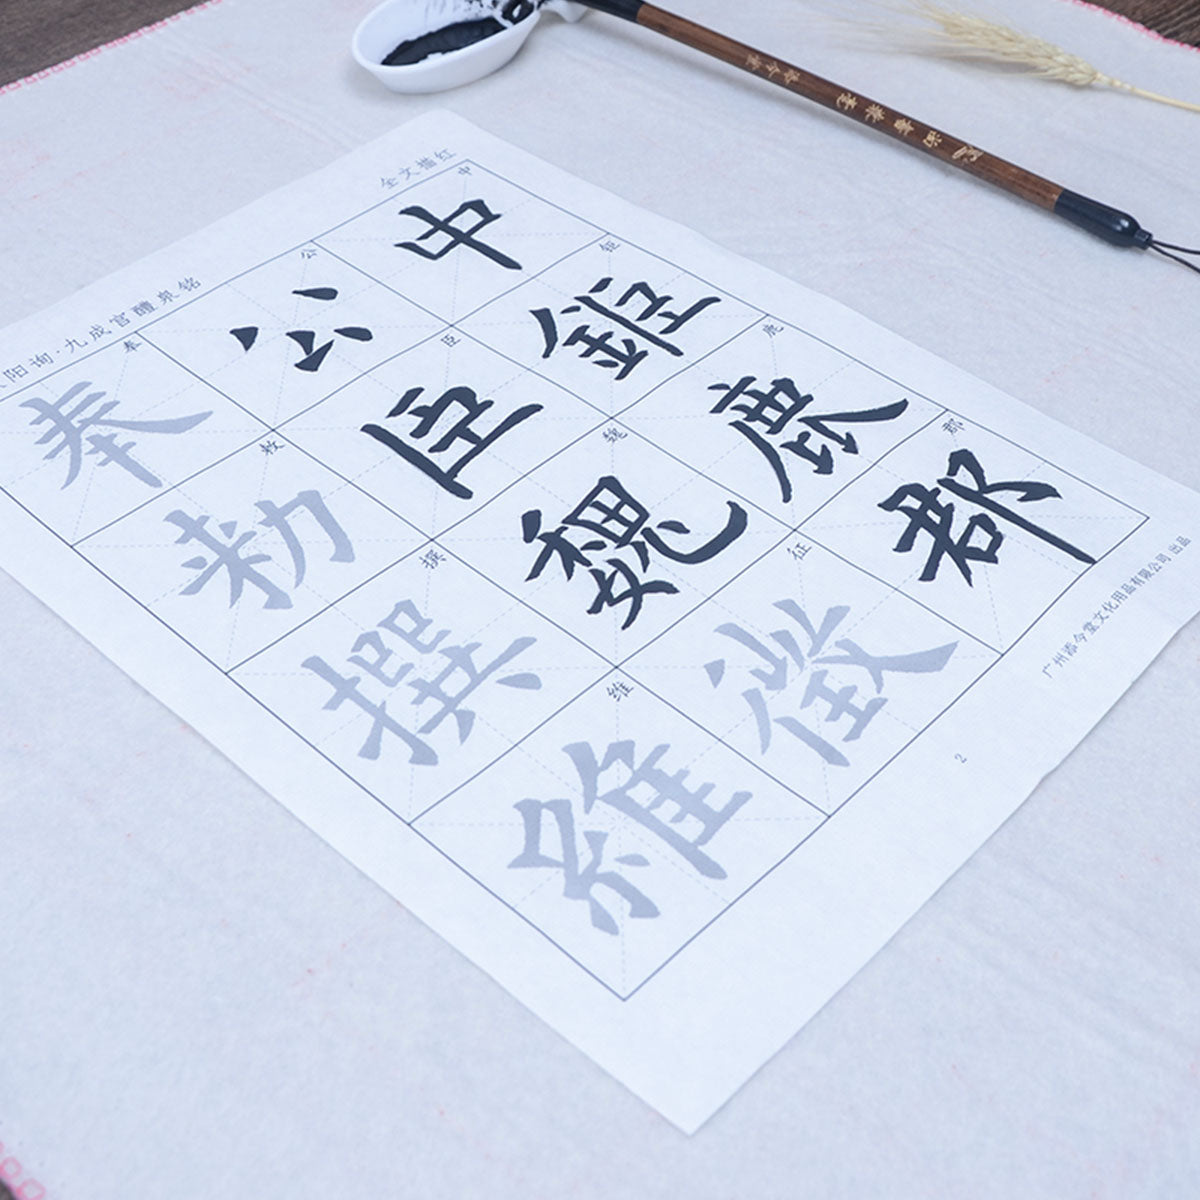 阳询·九成宫醴泉铭
全文描红
中钜鹿郡
中鉅鹿郡
公臣魏征
公臣魏徵
奉敕撰维
奉勑撰維
广州添今堂文化用品有限公司 出品
2